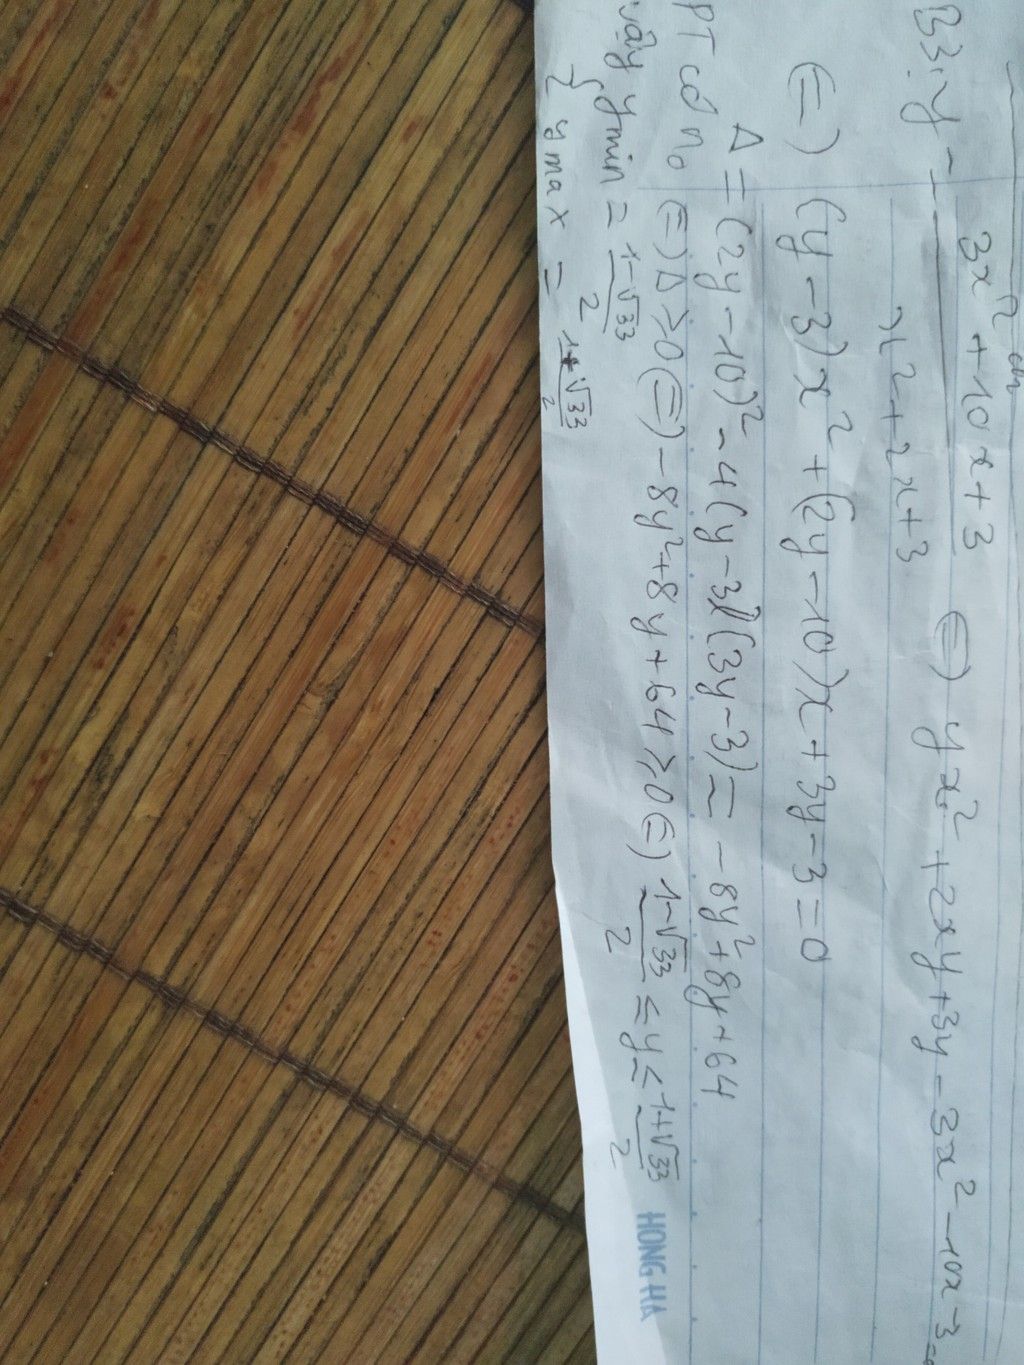 B3: y = 3x² + 10x + 3 / x² + 2x + 3 (=) yx² + 2xy + 3y - 3x² - 10x - 3 =
(=) (y - 3)x² + (2y - 10)x + 3y - 3 = 0
Δ = (2y - 10)² - 4(y - 3)(3y - 3) = -8y² + 8y + 64
PT có n₀ (=) Δ ≥ 0 (=) -8y² + 8y + 64 ≥ 0 (=) 1-√33 / 2 ≤ y ≤ 1+√33 / 2
vậy { ymin = 1-√33 / 2
ymax = 1+√33 / 2
HONG HA